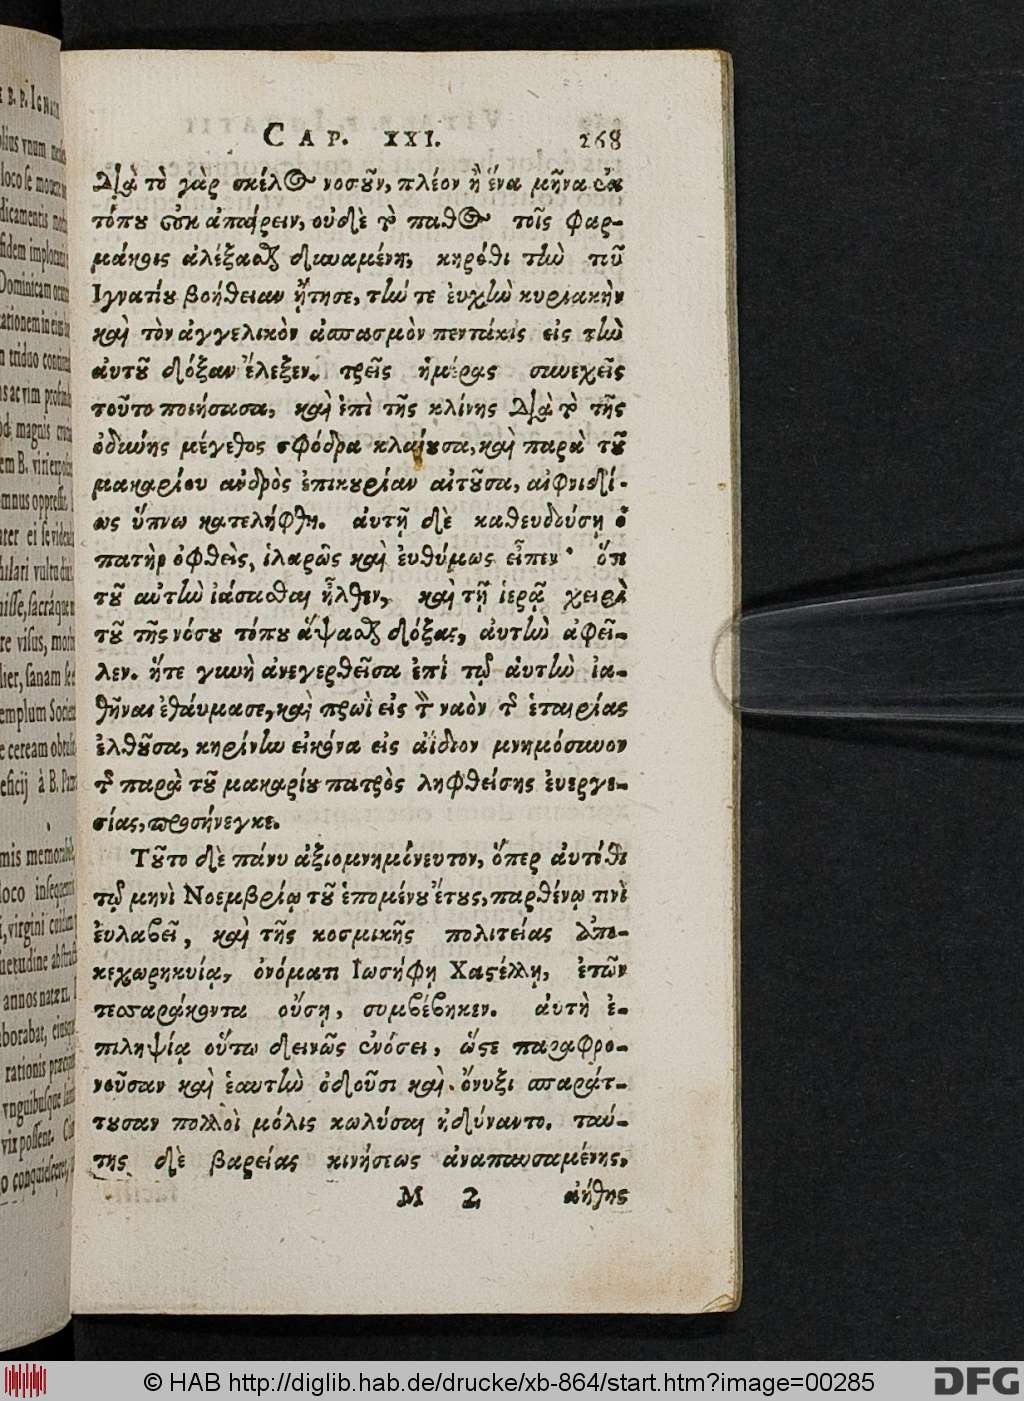 CAP. XXI. 268
Διὰ τὸ γὰρ σκέλος νοσοῦν, πλέον ἢ ἕνα μῆνα ἐκ
τόπου οὐκ ἀπαίρειν, οὐδὲ τὸ πάθος τοῖς φαρ-
μάκοις ἀλέξασθαι δυναμένη, κηρόθι τὴν τοῦ
Ἰγνατίου βοήθειαν ᾔτησε, τήν τε ἐυχὴν κυριακὴν
καὶ τὸν ἀγγελικὸν ἀσπασμὸν πεντάκις εἰς τὴν
ἀυτοῦ δόξαν ἔλεξεν. τρεῖς ἡμέρας συνεχεῖς
τοῦτο ποιήσασα, καὶ ἐπὶ τῆς κλίνης Διὰ τὸ τῆς
ὀδύνης μέγεθος σφόδρα κλαίουσα, καὶ παρὰ τοῦ
μακαρίου ἀνδρὸς ἐπικουρίαν αἰτοῦσα, αἰφνιδί-
ως ὕπνω κατελήφθη. ἀυτῇ δὲ καθευδούσῃ ὁ
πατὴρ ὀφθεὶς, ἱλαρῶς καὶ ἐυθύμως εἶπεν· ὅτι
τοῦ αὐτὴν ἰάσασθαι ἦλθεν, καὶ τῇ ἱερᾷ χειρὶ
τοῦ τῆς νόσου τόπου ἅψασθαι δόξας, ἀυτὴν ἀφεῖ-
λεν. ἥτε γυνὴ ἀνεγερθεῖσα ἐπὶ τῷ ἁυτὴν ἰα-
θῆναι ἐθάυμασε, καὶ πρωῒ εἰς τὸν ναὸν τῆς ἑταιρίας
ἐλθοῦσα, κηρίνην εἰκόνα εἰς ἀΐδιον μνημόσυνον
τῆς παρὰ τοῦ μακαρίου πατρὸς ληφθείσης ἐυεργε-
σίας, προσήνεγκε.
Τοῦτο δὲ πάνυ ἀξιομνημόνευτον, ὅπερ ἀυτόθι
τῷ μηνὶ Νοεμβρίῳ τοῦ ἑπομένου ἔτους, παρθένῳ τινὶ
ἐυλαβεῖ, καὶ τῆς κοσμικῆς πολιτείας ἀπο-
κεχωρηκυίᾳ, ὀνόματι Ἰωσήφῃ Χαστέλλῃ, ἐτῶν
τεσσαράκοντα οὔσῃ, συμβέβηκεν. ἀυτὴ ἐ-
πιληψίᾳ οὕτω δεινῶς ἐνόσει, ὥστε παραφρο-
νοῦσαν καὶ ἑαυτὴν ὀδοῦσι καὶ ὄνυξι σπαράτ-
τουσαν πολλοὶ μόλις κωλύσαι ἠδύναντο. ταύ-
της δὲ βαρείας κινήσεως ἀναπαυσαμένης,
M 2 ἀήθης
© HAB http://diglib.hab.de/drucke/xb-864/start.htm?image=00285
DFG